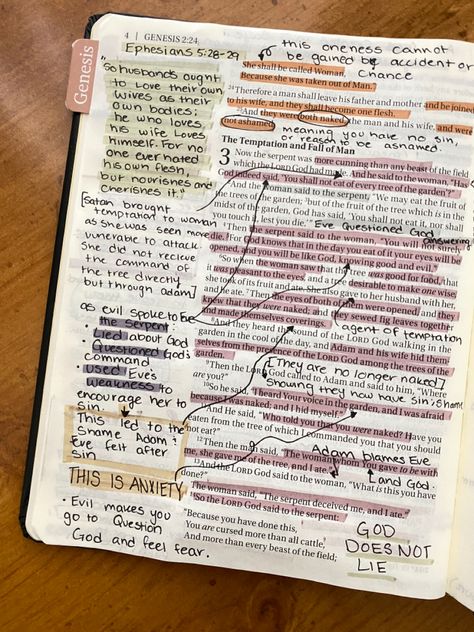 Genesis
4 | GENESIS 2:24
Ephesians 5:28-29
this oneness cannot
be gained by accident or
chance
She shall be called Woman,
Because she was taken out of Man."
24Therefore a man shall leave his father and mother and be joined
to his wife, and they shall become one flesh.
25And they were both naked, the man and his wife, and were
not ashamed.
meaning you have no sin,
or reason to be ashamed.
"So husbands ought
to Love their own
wives as their
own bodies;
he who loves
his wife Loves
himself. For no
one ever hated
his own flesh,
but nourishes and
cherishes it."
The Temptation and Fall of Man
3 Now the serpent was more cunning than any beast of the field
which the LORD God had made. And he said to the woman, "Has
God indeed said, 'You shall not eat of every tree of the garden'?"
2And the woman said to the serpent, "We may eat the fruit of
the trees of the garden; 3but of the fruit of the tree which is in the
midst of the garden, God has said, 'You shall not eat it, nor shall
you touch it, lest you die.'"
Eve questioned God
answering
[Satan brought
temptation to woman
as she was seen more
vunerable to attack.
She did not recieve
the command of
the tree directly
but through adam]
4Then the serpent said to the woman, "You will not surely
die. 5For God knows that in the day you eat of it your eyes will be
opened, and you will be like God, knowing good and evil."
6So when the woman saw that the tree was good for food, that
it was pleasant to the eyes, and a tree desirable to make one wise,
she took of its fruit and ate. She also gave to her husband with her,
and he ate. 7Then the eyes of both of them were opened, and they
knew that they were naked; and they sewed fig leaves together
and made themselves coverings.
agent of temptation
8And they heard the sound of the LORD God walking in the
garden in the cool of the day, and Adam and his wife hid them-
selves from the presence of the LORD God among the trees of the
garden.
[They are no longer naked]
showing they now have sin/shame
as evil spoke to Eve
the serpent:
• Lied about God
• Questioned God's
command
• used Eve's
weakness to
encourage her to
sin.
9Then the LORD God called to Adam and said to him, "Where
are you?"
10So he said, "I heard Your voice in the garden, and I was afraid
because I was naked; and I hid myself."
11And He said, "Who told you that you were naked? Have you
eaten from the tree of which I commanded you that you should
not eat?"
This led to the
shame Adam &
Eve felt after
sin
12Then the man said, "The woman whom You gave to be with
me, she gave me of the tree, and I ate."
Adam blames Eve
and God.
13And the LORD God said to the woman, "What is this you have
done?"
The woman said, "The serpent deceived me, and I ate."
THIS IS ANXIETY
14So the LORD God said to the serpent:
"Because you have done this,
You are cursed more than all cattle,
And more than every beast of the field;
• Evil makes you
go to Question
God and feel fear.
GOD
DOES NOT
LIE